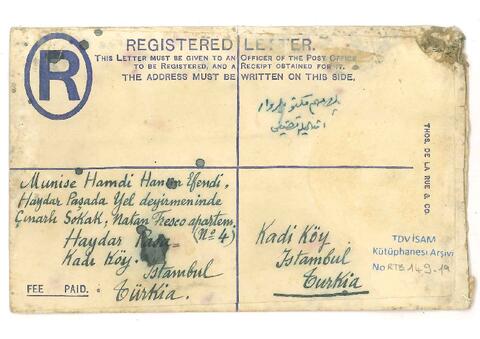 R
REGISTERED LETTER.
THIS LETTER MUST BE GIVEN TO AN OFFICER OF THE POST OFFICE
TO BE REGISTERED, AND A RECEIPT OBTAINED FOR IT.
THE ADDRESS MUST BE WRITTEN ON THIS SIDE.
THOS. DE LA RUE & CO.
Munise Hamdi Hanım Efendi,
Haydar Paşada Yel deyirmeninde
Çınarlı Sokak, Natan Fresco apartem,
Haydar Paşa (No 4)
Kadi Köy.
Istanbul
Türkia.
Kadi Köy
Istanbul
Turkia
FEE PAID.
TDV İSAM
Kütüphanesi Arşivi
No RTB 149-19